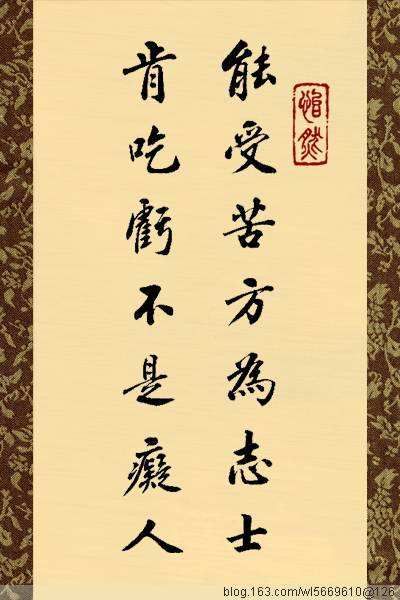 能受苦方為志士
肯吃虧不是癡人
blog.163.com/wl5669610@126